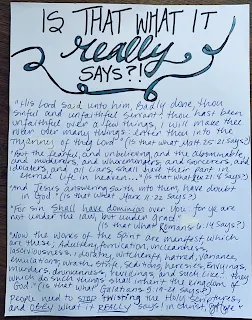 IS THAT WHAT IT
really
SAYS?!
"His Lord said unto him, Badly done, thou
sinful and unfaithful servant: thou hast been
unfaithful over a few things, I will make thee
ruler over many things: enter thou into the
Tyranny of thy Lord." (Is that what Matt 25:21 says?)
"But the fearful, and unbelieving, and the abominable,
and murderers, and whoremongers, and sorcerers, and
idolaters, and all liars, shall have their part in
eternal life in heaven." (Is that what Rev 21:8 says?)
"And Jesus answering saith unto them, have doubt
in God" (Is that what Mark 11:22 says?)
"For sin shall have dominion over you: for ye are
not under the law, but under grace"
(Is that what Romans 6:14 says?)
Now the works of the Spirit are manifest which
are these; Adultery, fornication, uncleanness,
lasciviousness, idolatry, witchcraft, hatred, variance,
emulations, wrath, strife, seditions, heresies, Envyings,
murders, drunkenness, revelings, and such like: they
which do such things shall inherit the kingdom of
God." (Is that what Galatians 5:19-21 says?)
People need to STOP twisting the Holy Scriptures,
and OBEY what it REALLY says in Christ,